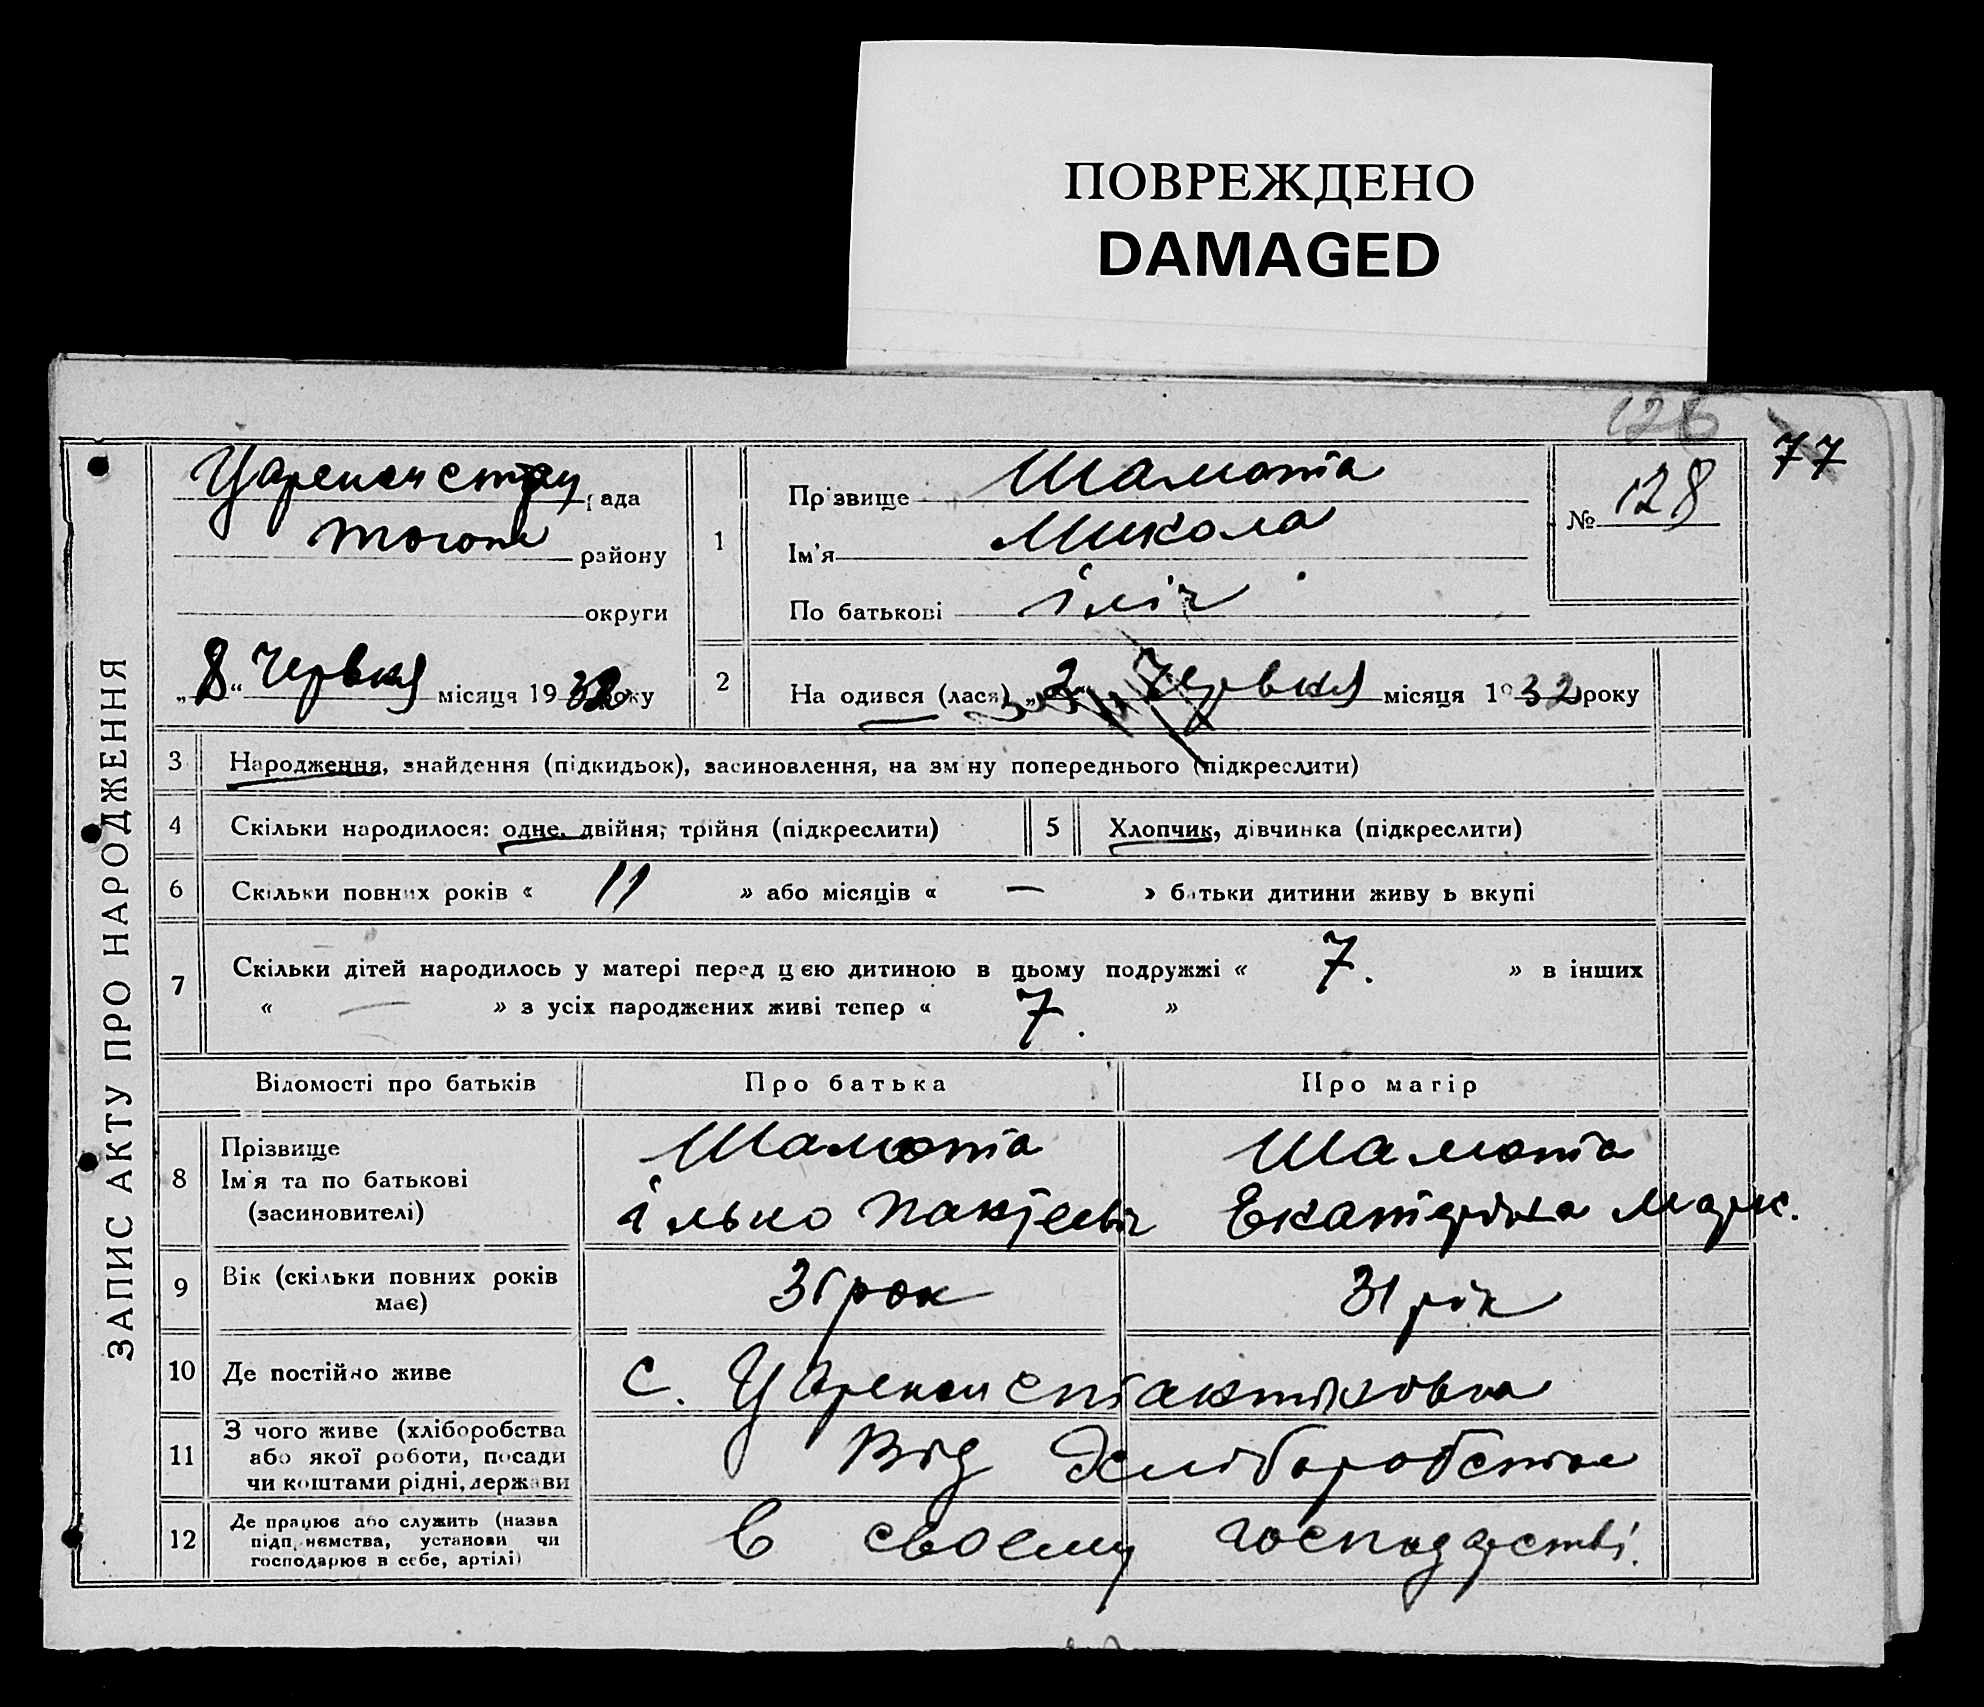 ПОВРЕЖДЕНО
DAMAGED
126
77
ЗАПИС АКТУ ПРО НАРОДЖЕННЯ
рада
району
округи
„8“ Червня місяця 1932 року
1
Прізвище Шамота
Ім'я Микола
По батькові Іліч
№ 128
2 На одився (лася) „2“ Червня місяця 1932 року
3 Народження, знайдення (підкидьок), засиновлення, на зміну попереднього (підкреслити)
4 Скільки народилося: одне, двійня, трійня (підкреслити)
5 Хлопчик, дівчинка (підкреслити)
6 Скільки повних років « 11 » або місяців « — » батьки дитини живуть вкупі
7 Скільки дітей народилось у матері перед цією дитиною в цьому подружжі « 7. » в інших
« — » з усіх народжених живі тепер « 7. »
Відомості про батьків Про батька Про матір
8 Прізвище
Ім'я та по батькові
(засиновителі)
Шамота
Ілько
Шамота
Екатеріна Марк.
9 Вік (скільки повних років
має)
31 рок
31 рік
10 Де постійно живе
с. Цареконстантіновка
11 З чого живе (хліборобства
або якої роботи, посади
чи коштами рідні, держави
Від хліборобства
12 Де працює або служить (назва
підприємства, установи чи
господарює в себе, артілі)
в своему господарстві.